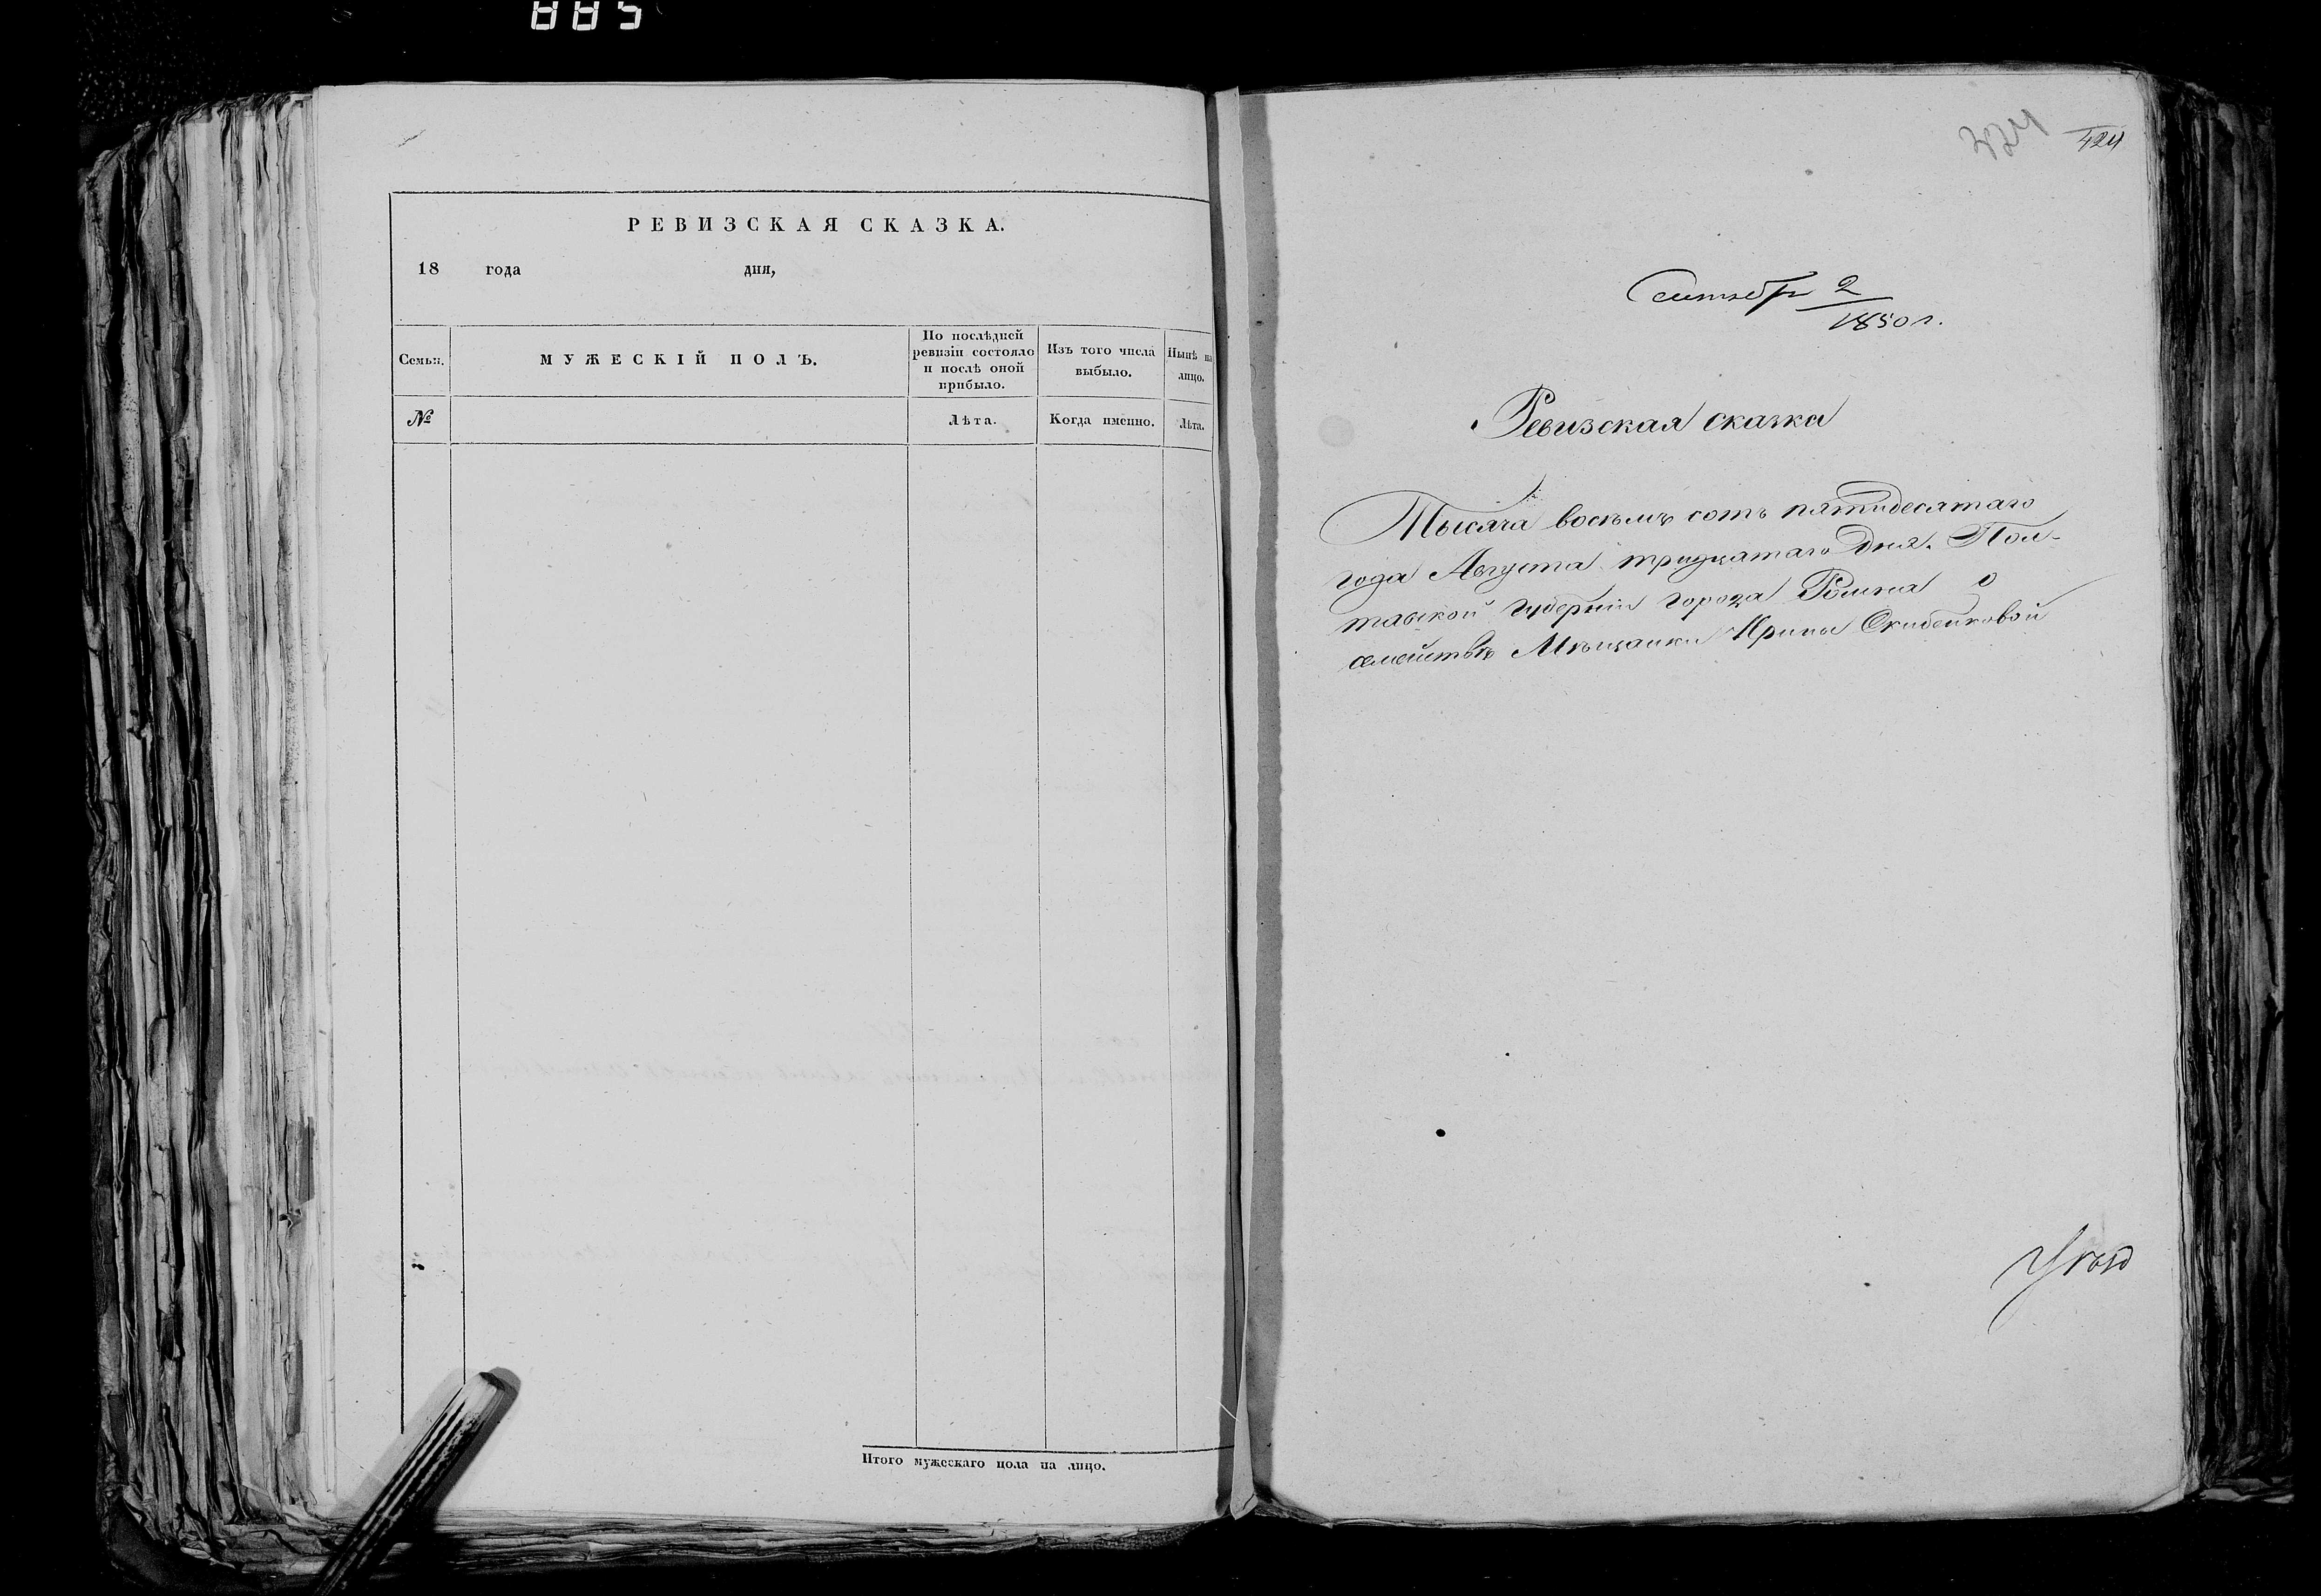 885
РЕВИЗСКАЯ СКАЗКА.
18 года дня,
Семьи.
МУЖЕСКІЙ ПОЛЪ.
По послѣдней ревизіи состояло и послѣ оной прибыло.
Изъ того числа выбыло.
Нынѣ на лицо.
№
Лѣта.
Когда именно.
Лѣта.
Итого мужескаго пола на лицо.
324
424
Сентябр 2
1850 г.
Ревизская сказка
Тысяча восемь сотъ пятидесятаго
года Августа тридцатаго дня. Пол-
тавской губерніи города Ромна о
семействѣ Мѣщанки Ирины Скибенковой